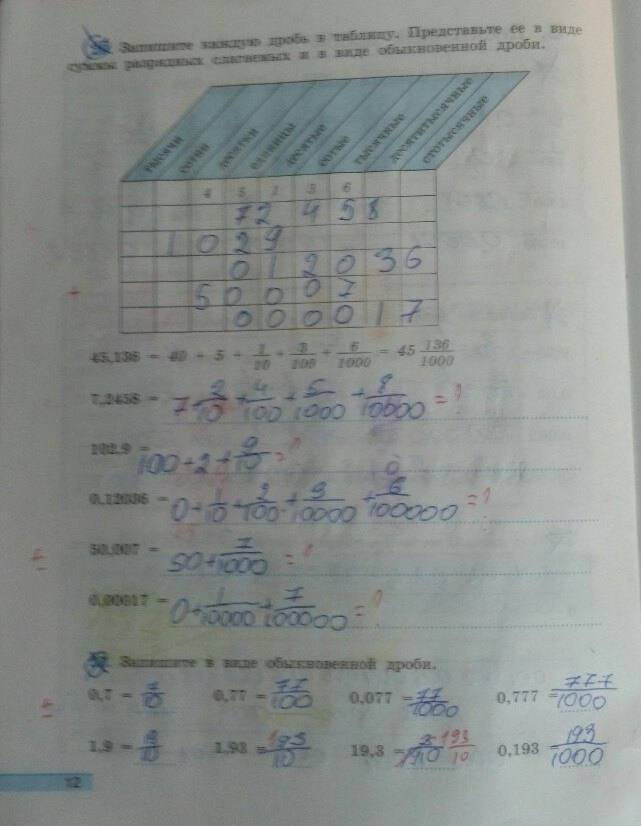 Запишите каждую дробь в таблицу. Представьте ее в виде
суммы разрядных слагаемых и в виде обыкновенной дроби.
тысячи сотни десятки единицы десятые сотые тысячные десятитысячные стотысячные
4 5 1 3 6
7 2 4 5 8
1 0 2 9
0 1 2 0 3 6
5 0 0 0 7
0 0 0 0 1 7
45,136 = 40 + 5 + 1/10 + 3/100 + 6/1000 = 45 136/1000
7,2458 = 7 + 2/10 + 4/100 + 5/1000 + 8/10000 = ?
102,9 = 100 + 2 + 9/10 = ?
0,12036 = 0 + 1/10 + 2/100 + 3/10000 + 6/100000 = ?
50,007 = 50 + 7/1000 = ?
0,00017 = 0 + 1/10000 + 7/100000 = ?
Запишите в виде обыкновенной дроби.
0,7 = 7/10 0,77 = 77/100 0,077 = 77/1000 0,777 = 777/1000
1,9 = 9/10 1,93 = 193/10 19,3 = 193/10 0,193 = 193/1000
12